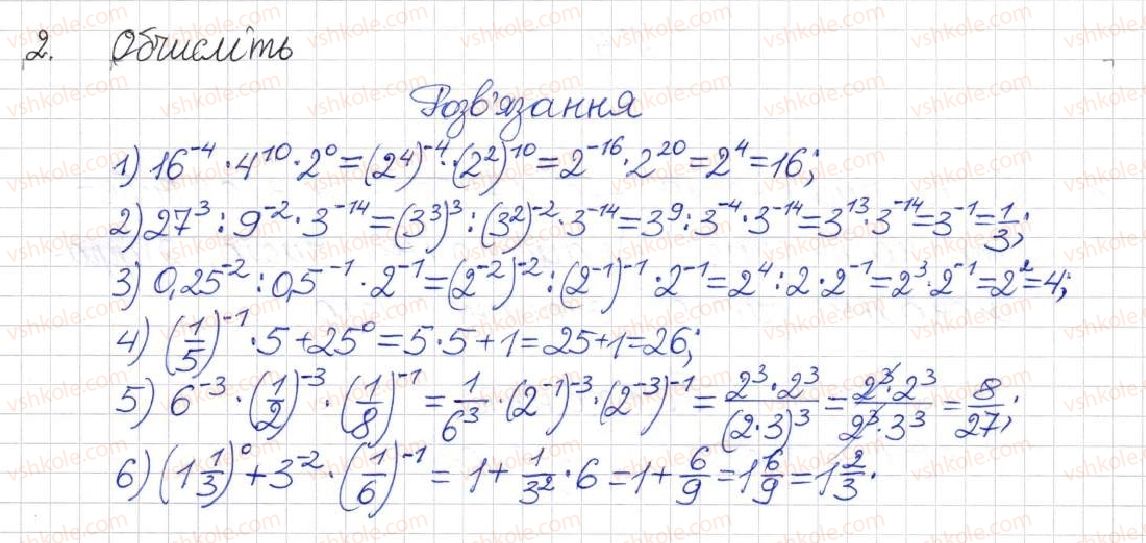 2. Обчисліть
Розв'язання
1) 16⁻⁴ · 4¹⁰ · 2⁰ = (2⁴)⁻⁴ · (2²)¹⁰ = 2⁻¹⁶ · 2²⁰ = 2⁴ = 16;
2) 27³ : 9⁻² · 3⁻¹⁴ = (3³)³ : (3²)⁻² · 3⁻¹⁴ = 3⁹ : 3⁻⁴ · 3⁻¹⁴ = 3¹³ · 3⁻¹⁴ = 3⁻¹ = 1/3;
3) 0,25⁻² : 0,5⁻¹ · 2⁻¹ = (2⁻²)⁻² : (2⁻¹)⁻¹ · 2⁻¹ = 2⁴ : 2 · 2⁻¹ = 2³ · 2⁻¹ = 2² = 4;
4) (1/5)⁻¹ · 5 + 25⁰ = 5 · 5 + 1 = 25 + 1 = 26;
5) 6⁻³ · (1/2)⁻³ · (1/8)⁻¹ = 1/6³ · (2⁻¹)⁻³ · (2⁻³)⁻¹ = (2³ · 2³)/(2 · 3)³ = (2³ · 2³)/(2³ · 3³) = 8/27;
6) (1 1/3)⁰ + 3⁻² · (1/6)⁻¹ = 1 + 1/3² · 6 = 1 + 6/9 = 1 6/9 = 1 2/3.